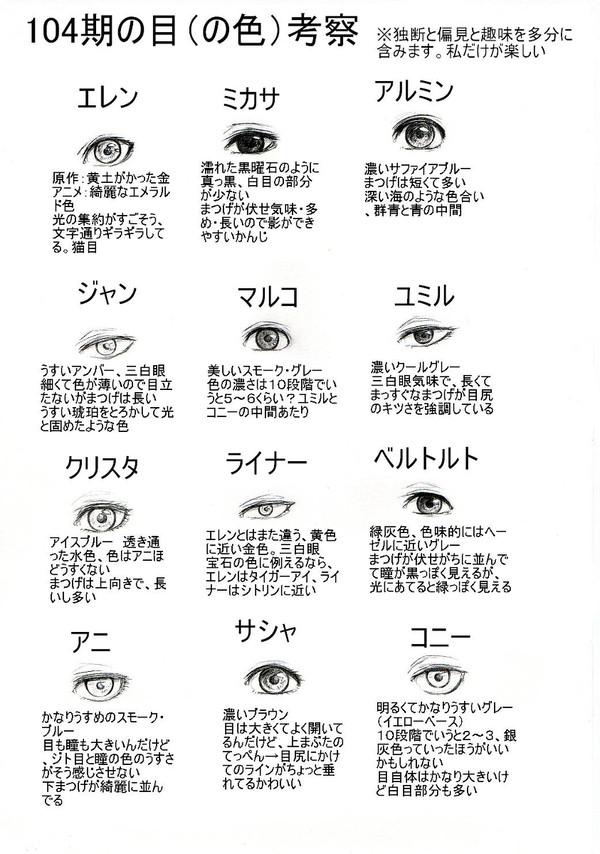 104期の目(の色)考察
※独断と偏見と趣味を多分に
含みます。私だけが楽しい
エレン
原作:黄土がかった金
アニメ:綺麗なエメラル
ド色
光の集約がすごそう、
文字通りギラギラして
る。猫目
ミカサ
濡れた黒曜石のように
真っ黒、白目の部分
が少ない
まつげが伏せ気味・多
め・長いので影ができ
やすいかんじ
アルミン
濃いサファイアブルー
まつげは短くて多い
深い海のような色合い
、群青と青の中間
ジャン
うすいアンバー、三白眼
細くて色が薄いので目立
たないがまつげは長い
うすい琥珀をとろかして光
と固めたような色
マルコ
美しいスモーク・グレー
色の濃さは10段階でい
うと5~6くらい?ユミルと
コニーの中間あたり
ユミル
濃いクールグレー
三白眼気味で、長くて
まっすぐなまつげが目尻
のキツさを強調している
クリスタ
アイスブルー 透き通
った水色、色はアニほ
どうすくない
まつげは上向きで、長
いし多い
ライナー
エレンとはまた違う、黄色
に近い金色。三白眼
宝石の色に例えるなら、
エレンはタイガーアイ、ライ
ナーはシトリンに近い
ベルトルト
緑灰色、色味的にはヘー
ゼルに近いグレー
まつげが伏せがちに並んで
て瞳が黒っぽく見えるが、
光にあてると緑っぽく見える
アニ
かなりうすめのスモーク・
ブルー
目も瞳も大きいんだけど
、ジト目と瞳の色のうすさ
がそう感じさせない
下まつげが綺麗に並ん
でる
サシャ
濃いブラウン
目は大きくてよく開いて
るんだけど、上まぶたの
てっぺん→目尻にかけ
てのラインがちょっと垂
れてるかわいい
コニー
明るくてかなりうすいグレー
(イエローベース)
10段階でいうと2~3、銀
灰色っていったほうがいい
かもしれない
目自体はかなり大きいけ
ど白目部分も多い